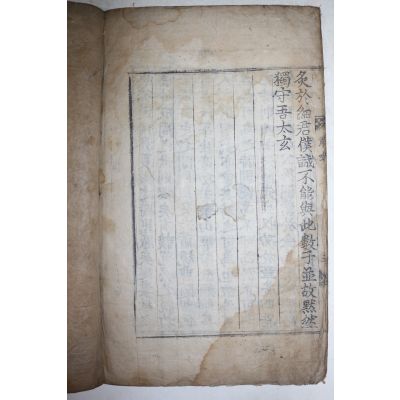 炙於細君僕誠不能與此數子並故黙然
獨守吾太玄